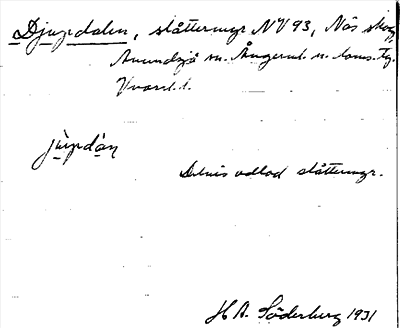 Djupdalen, slåttermyr NV 93, Näs skog,
Anundsjö sn. Ångerml. n. doms. Tg.
jùpdàn
Delvis odlad slåttermyr.
H A. Söderberg 1931